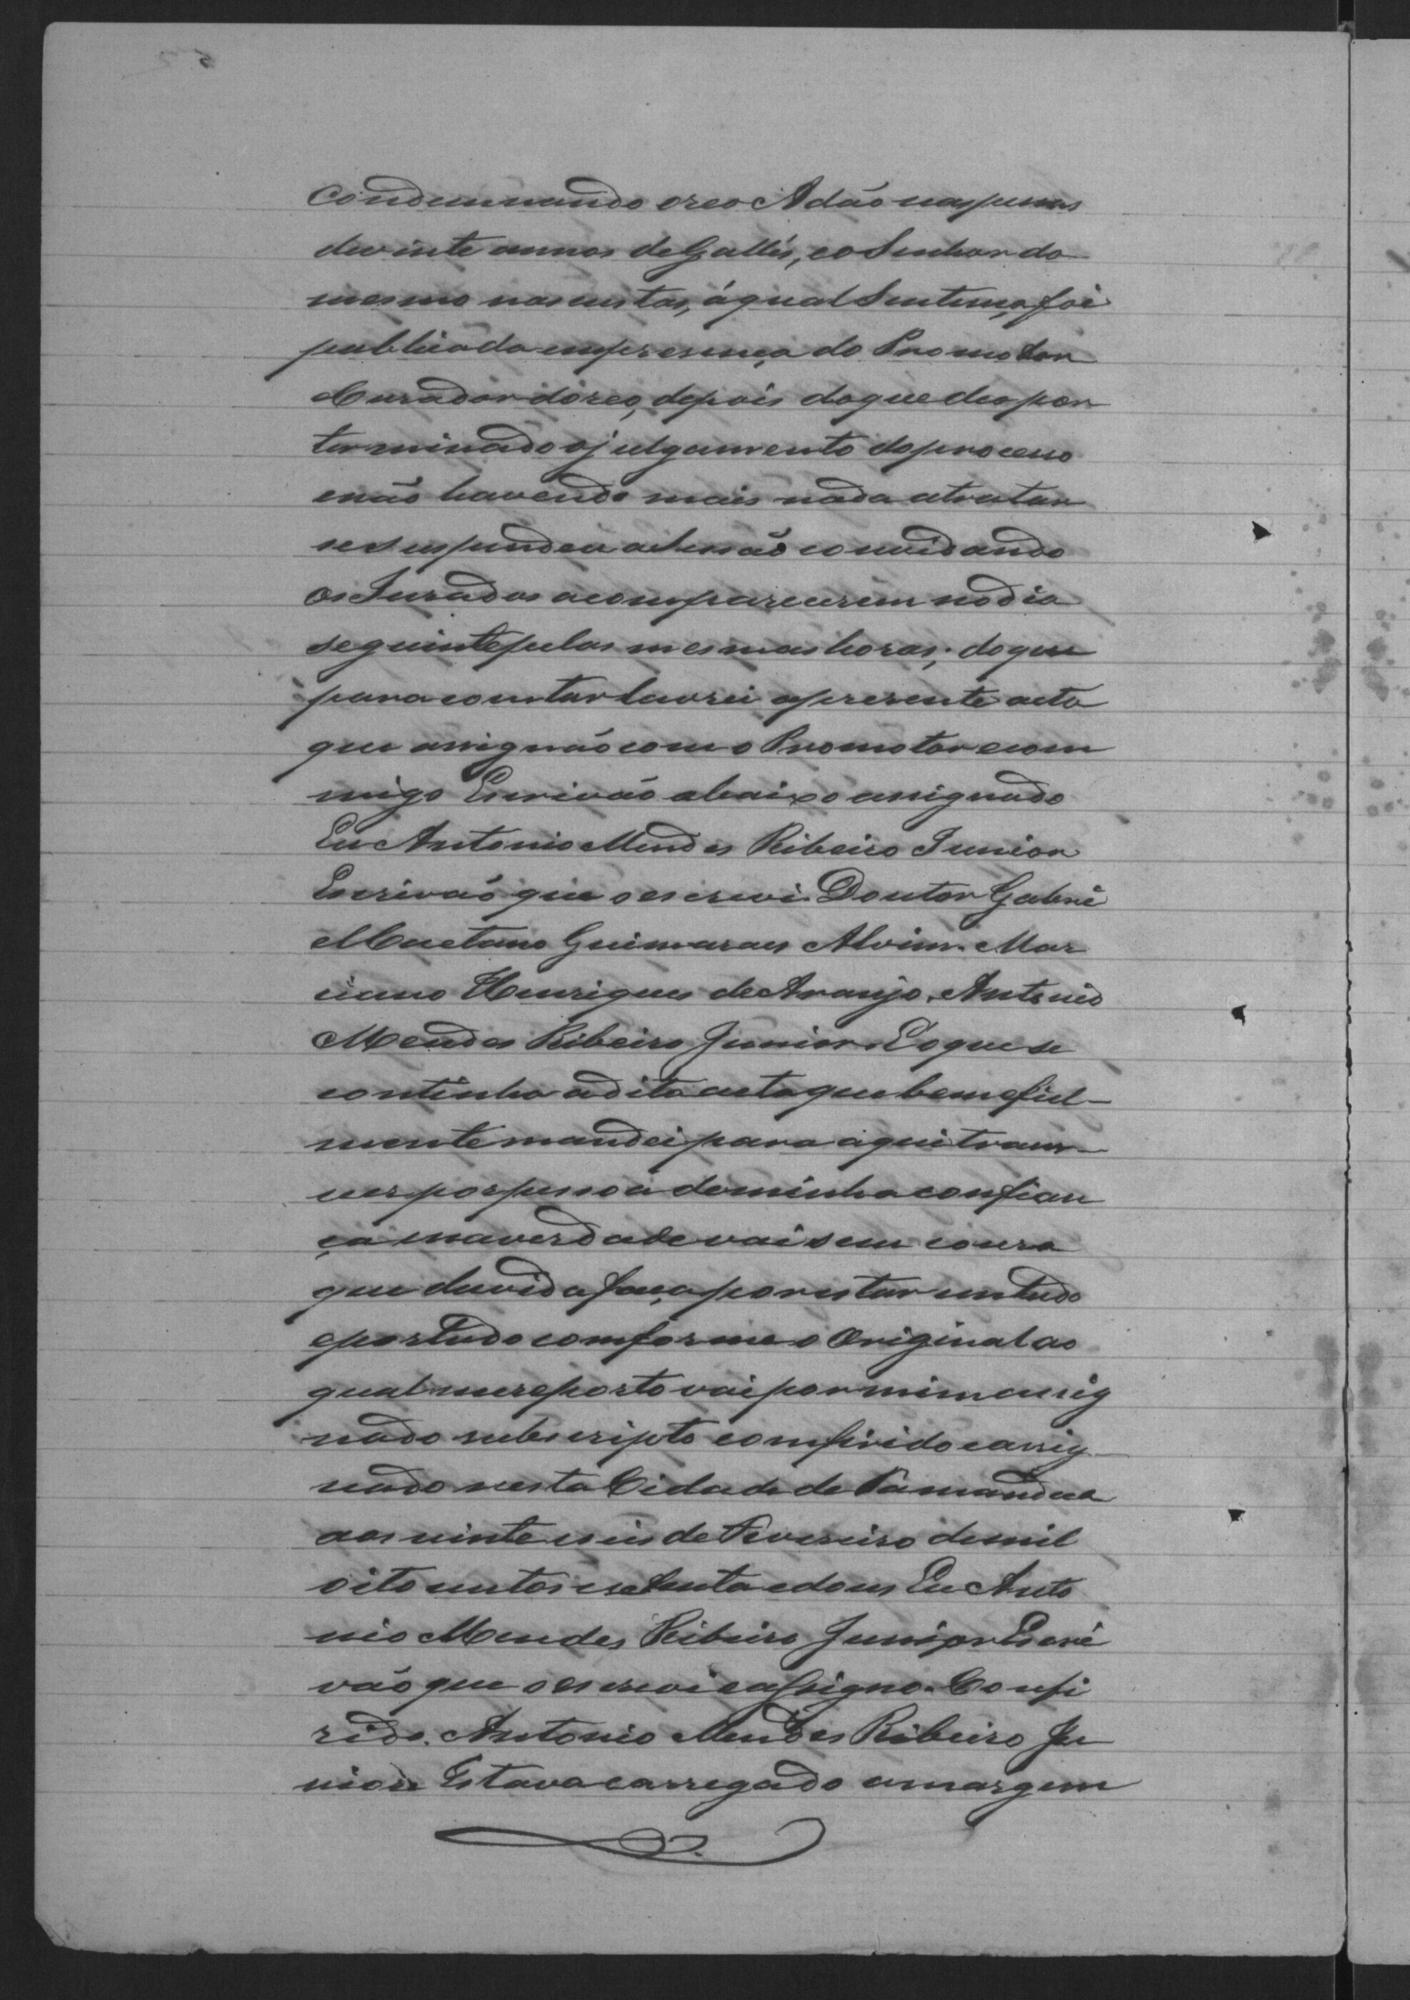 condemnando o reo Adão nas penas
de vinte annos de Gallés, e o Senhor do
mesmo nas custas, á qual Sentença foi
publicada em presença do Promotor
Curador do reo, depois do que deo por
terminado o julgamento do processo
e não havendo mais nada a tratar
se suspendeu a Sessão convidando
os Jurados a comparecerem no dia
seguinte pelas mesmas horas; do que
para constar lavrei a presente acta
que assignão com o Promotor e com
migo Escrivão abaixo assignado
Eu Antonio Mendes Ribeiro Junior
Escrivão que o escrevi. Doutor Gabri
el Caetano Guimaraes Alvim. Mar
ciano Henriques de Araujo. Antonio
Mendes Ribeiro Junior. E o que se
continha a dita acta que bem e fiel-
mente mandei para aqui trans-
crever por pessoa de minha confian
ça e na verdade vai sem cousa
que duvida faça por estar em tudo
e por tudo comforme o Original ao
qual me reporto vai por mim assig
nado subscripto comferido e assig
nado nesta Cidade de Tamandua
aos vinte e seis de Fevereiro de mil
oito centos e setenta e dous Eu Anto
nio Mendes Ribeiro Junior Escri
vão que o escrevi e assigno. Confi
rido. Antonio Mendes Ribeiro Ju
nior Estava carregado a margem